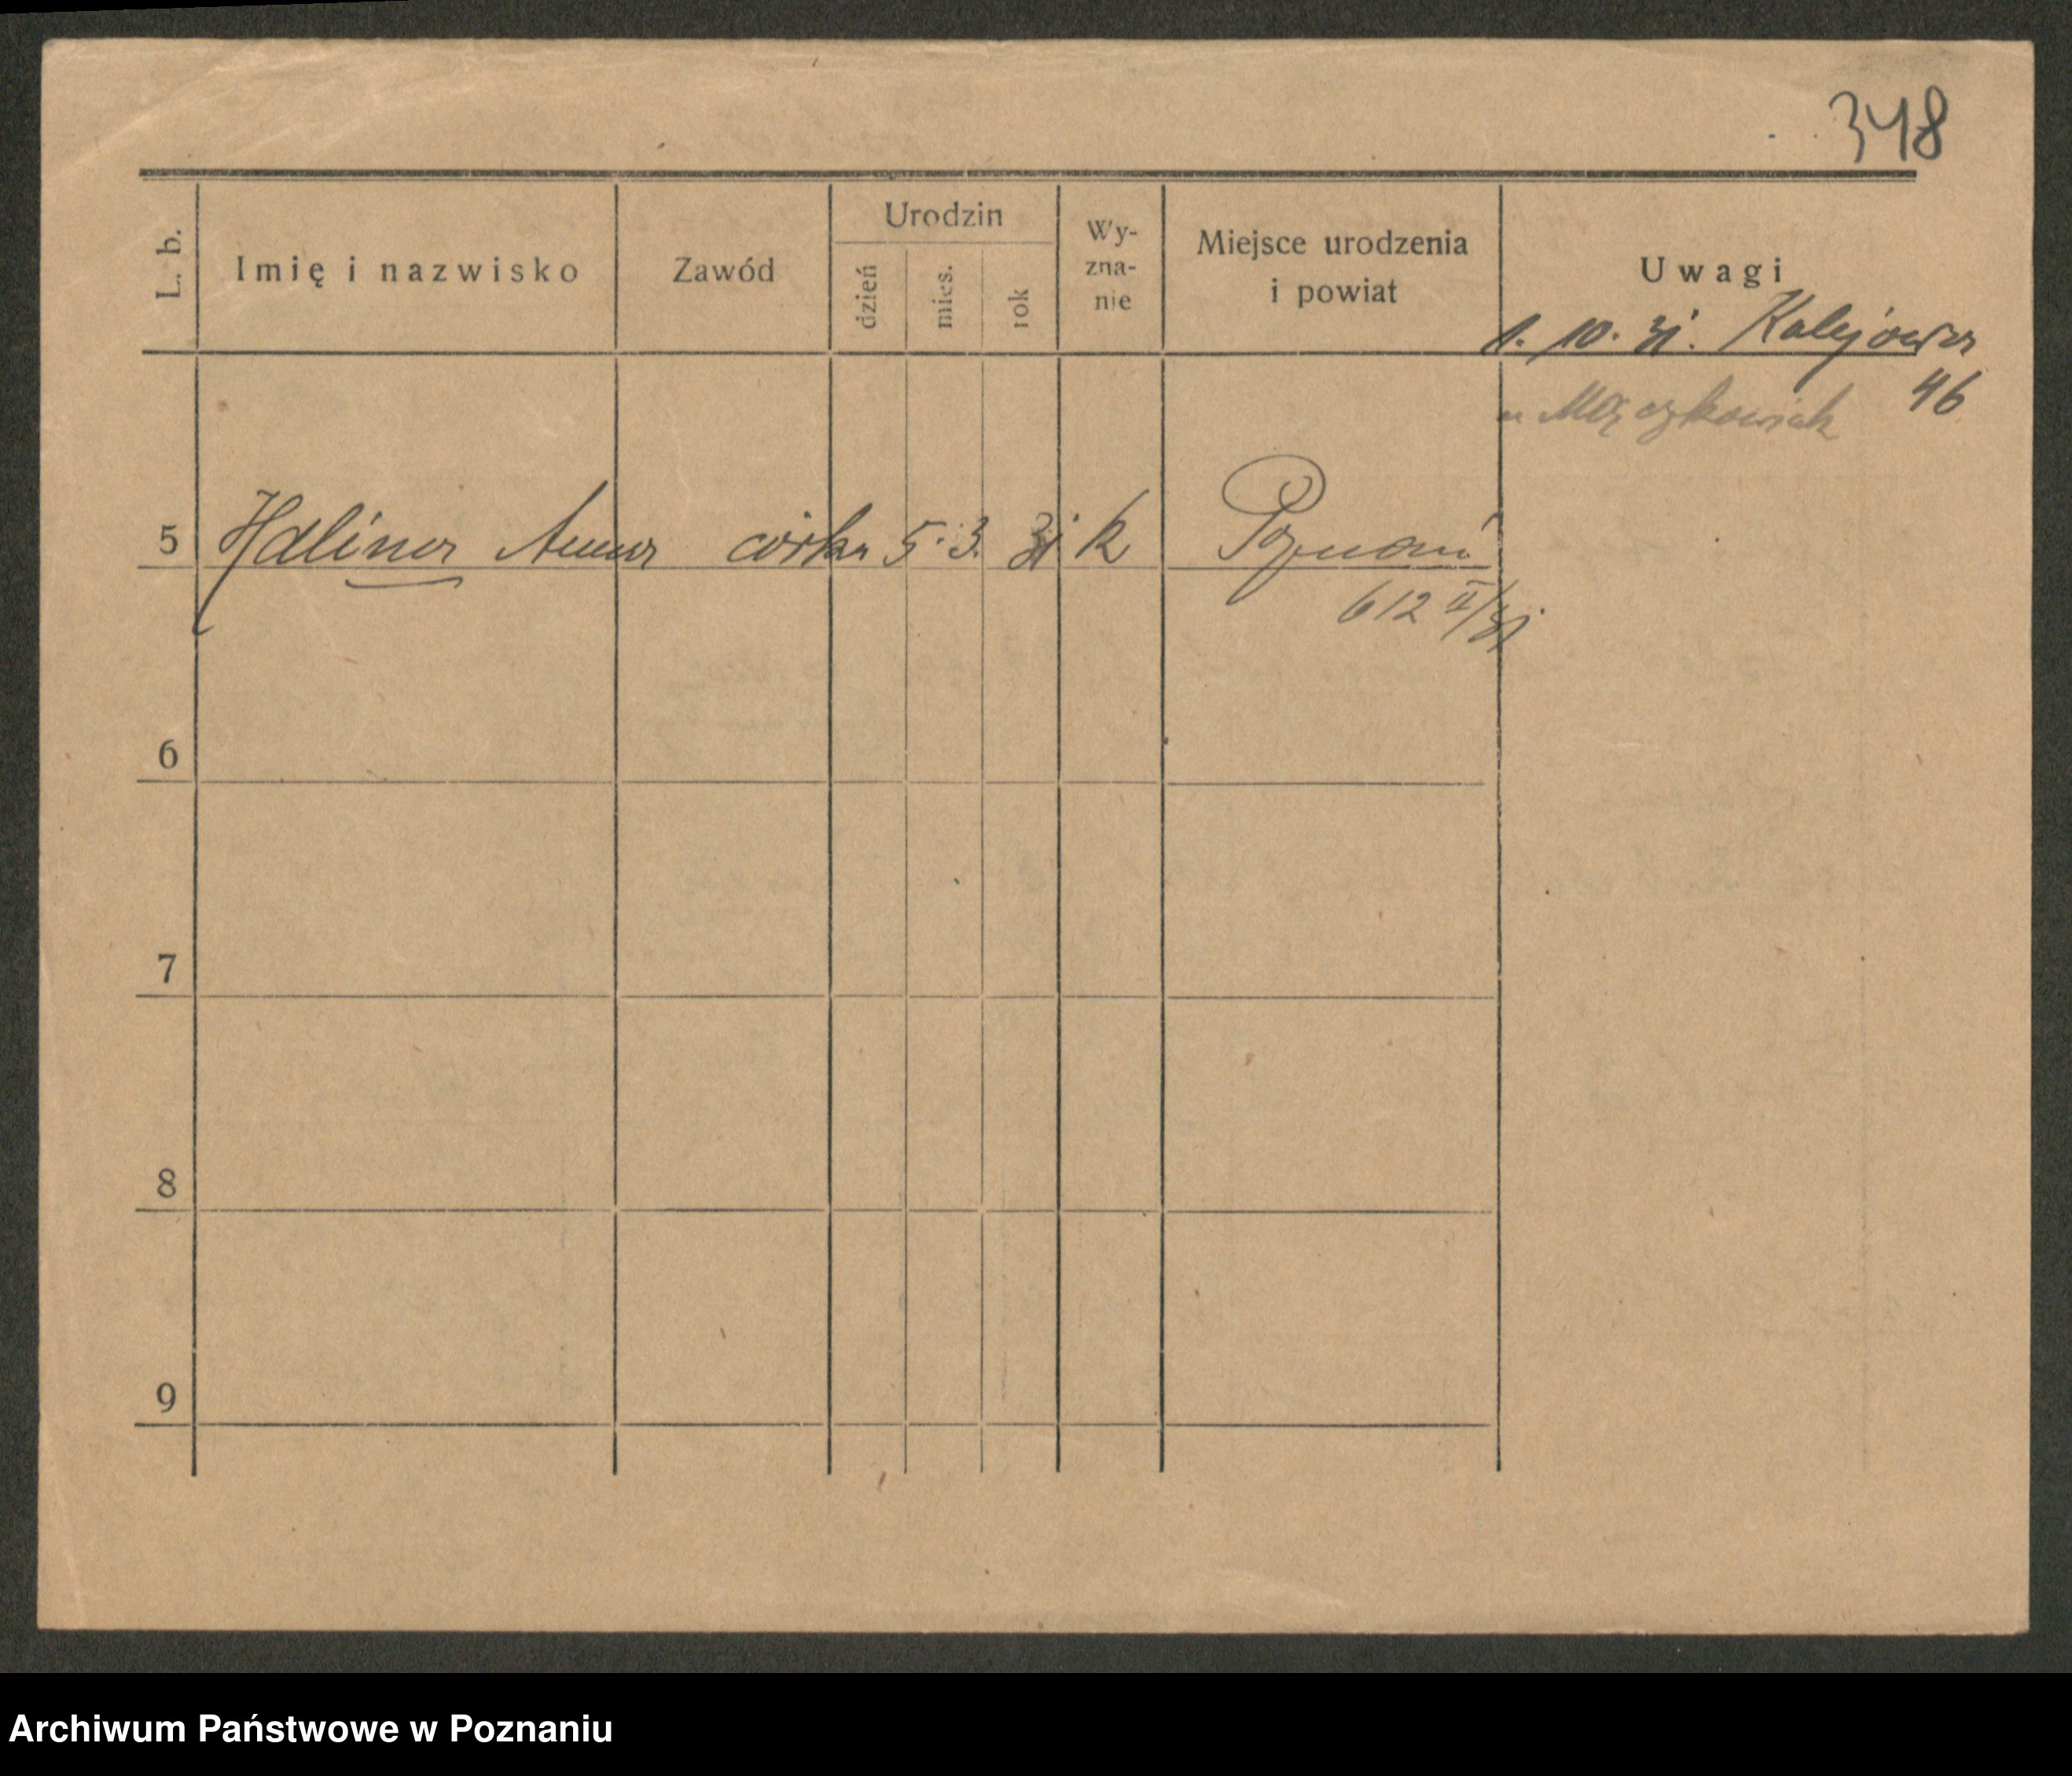 348
L. b.
Imię i nazwisko
Zawód
Urodzin
dzień
mies.
rok
Wy-
zna-
nie
Miejsce urodzenia
i powiat
Uwagi
1. 10. 31. Kolejowa
46
u
5 Halina Anna córka 5. 3. 31 k Poznań
612 II/31
6
7
8
9
Archiwum Państwowe w Poznaniu